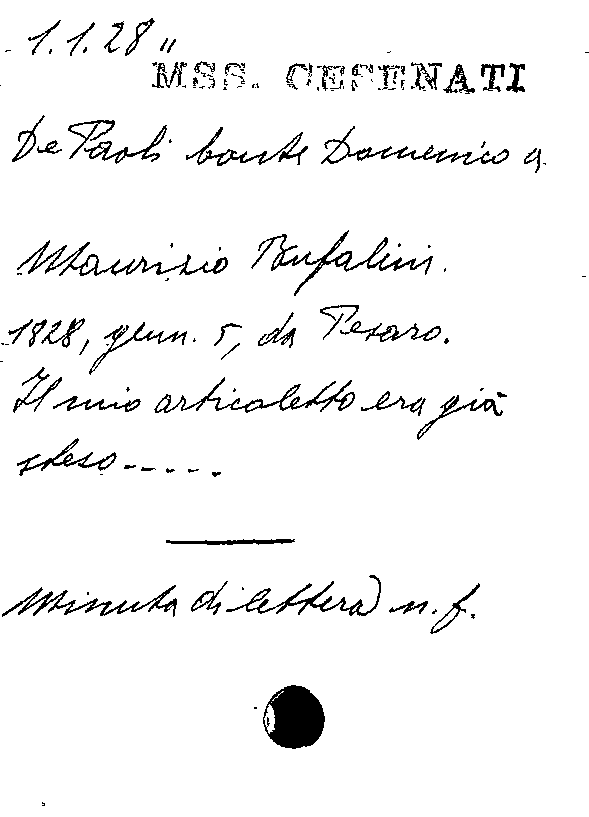 1.1.28"
MSS. CESENATI
De Paoli conte Domenico a
Maurizio Bufalini.
1828, genn. 5, da Pesaro.
Il mio articoletto era già
steso.....
Minuta di lettera) n. f.